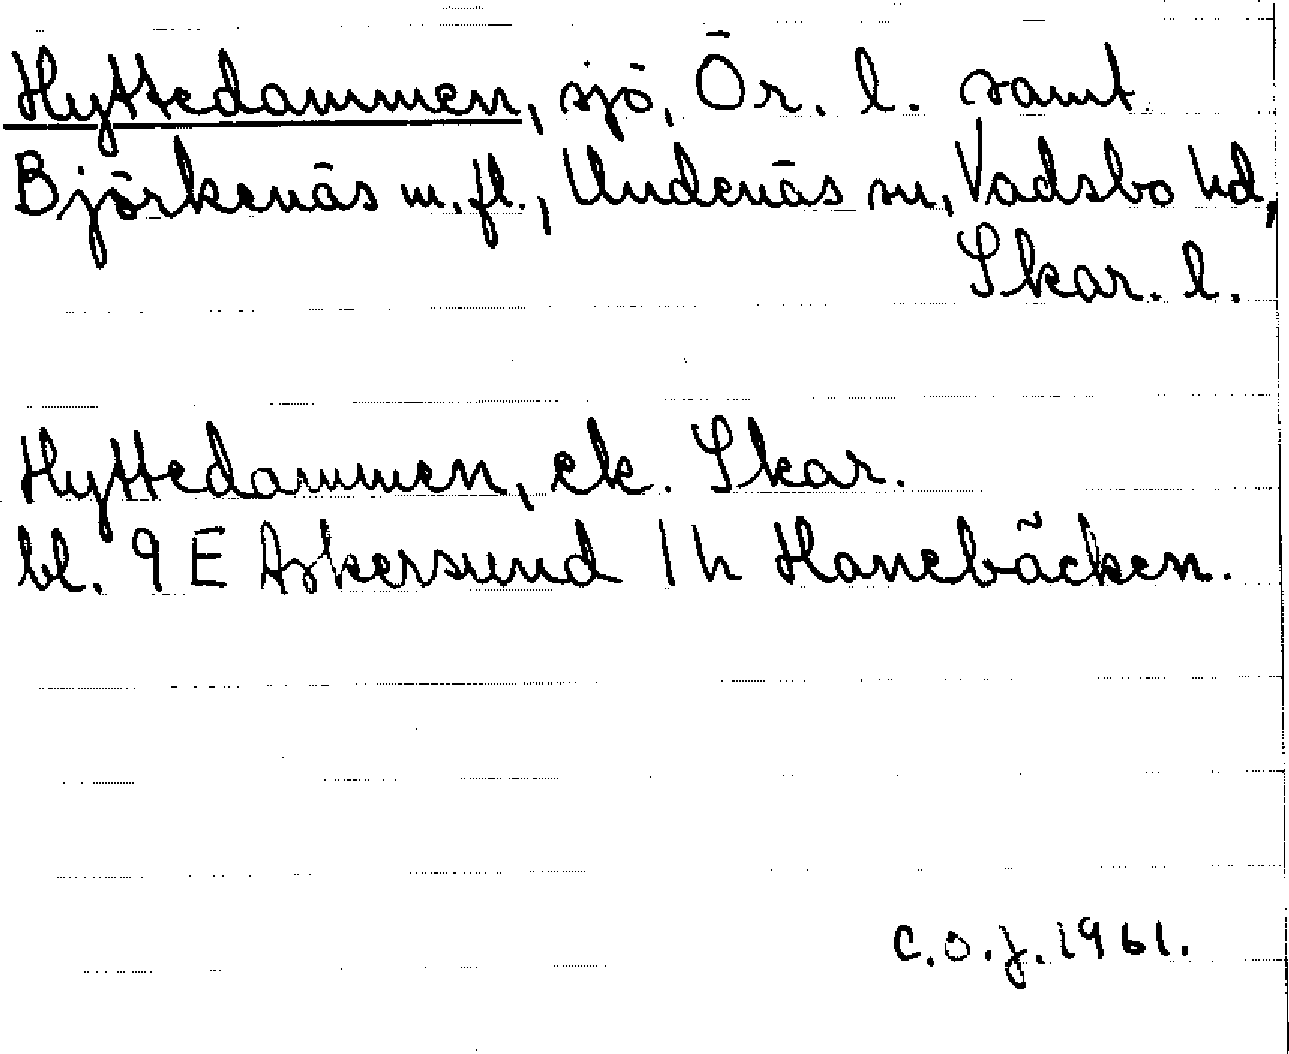 Hyttedammen, sjö, Ör. l. samt
Björkenäs m.fl., Undenäs sn, Vadsbo hd,
Skar. l.
Hyttedammen, ek. Skar.
bl. 9 E Askersund 1 h Hanebäcken.
C.O.J. 1961.